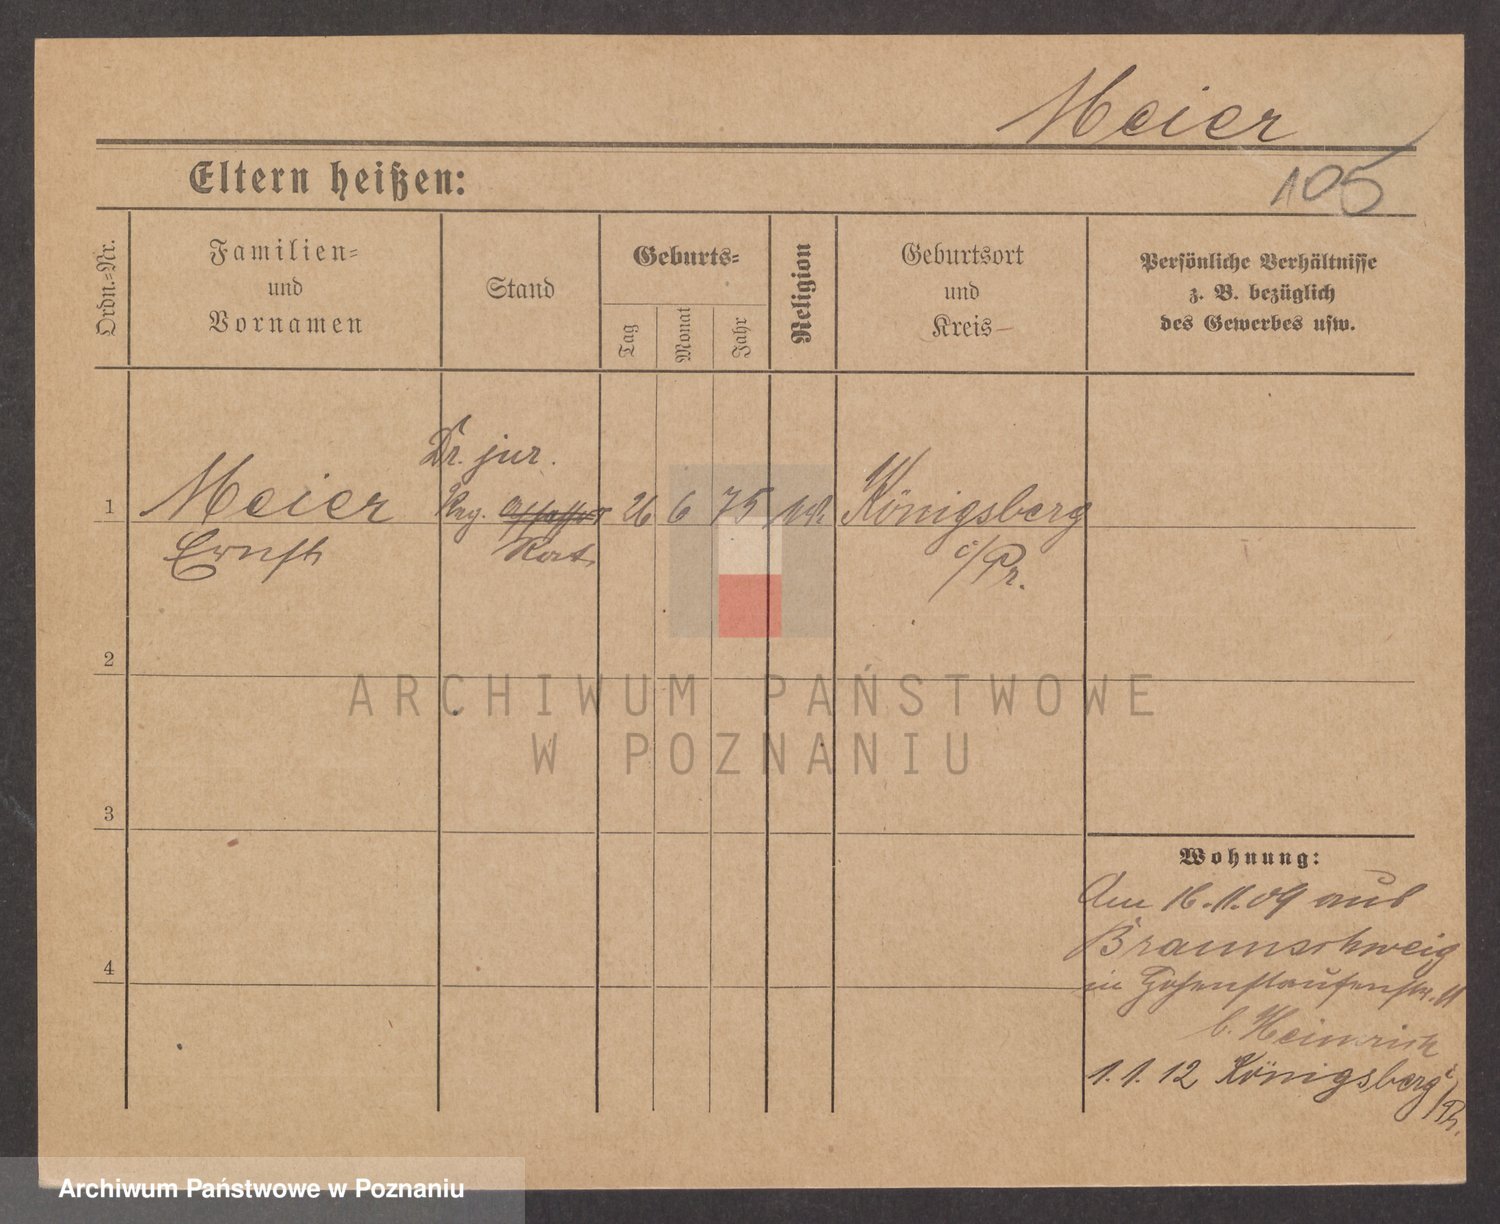 Meier
105
Eltern heißen:
Ordn.=Nr.
Familien=
und
Vornamen
Stand
Geburts=
Tag
Monat
Jahr
Religion
Geburtsort
und
Kreis
Persönliche Verhältnisse
z. B. bezüglich
des Gewerbes usw.
Dr. jur.
1 Meier Reg. Assessor 26 6 75 Königsberg
Ernst Rat i/Pr.
2
3
4
Wohnung:
Am 16.11.09 aus
Braunschweig
in Hohenstaufenstr. 11
b. Heinrich
1.1.12 Königsberg i/Pr.
ARCHIWUM PAŃSTWOWE
W POZNANIU
Archiwum Państwowe w Poznaniu